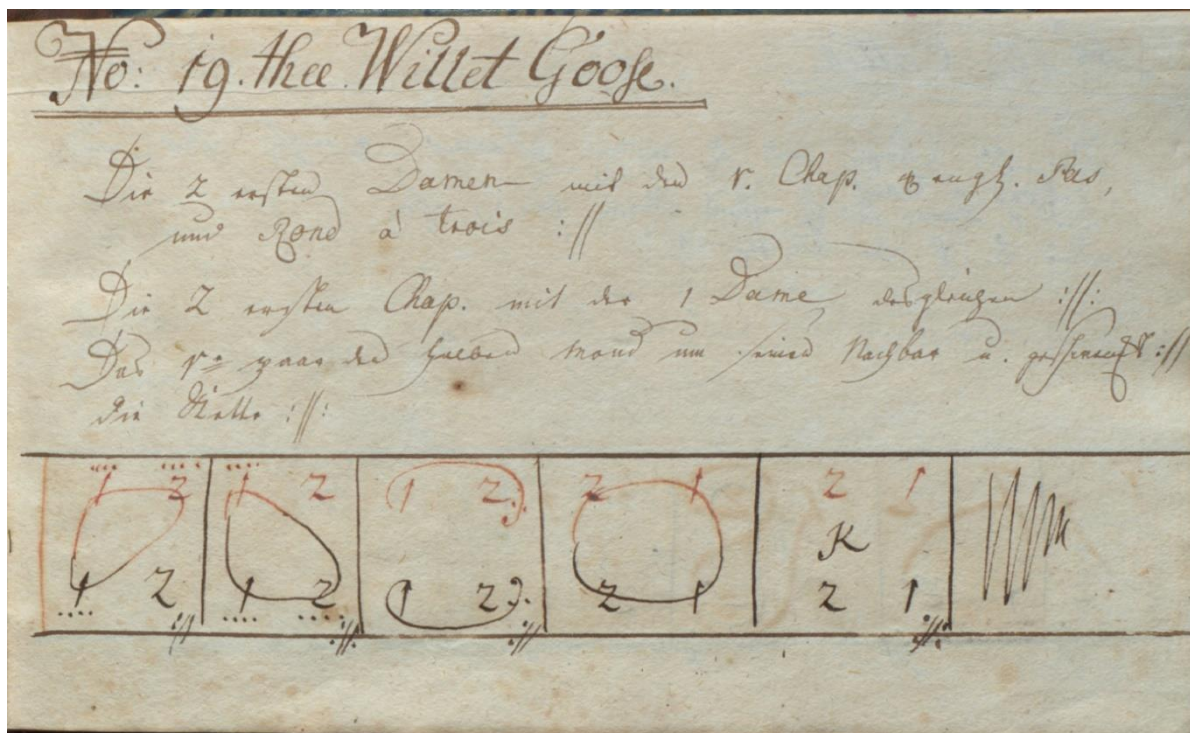 No: 19. thee Willet Goose.
Die 2 ersten Damen mit den 1. Chap. engl. Pas,
und Rond à trois ://
Die 2 ersten Chap. mit der 1 Dame desgleichen ://:
Das 1te paar den halben Mond um seinen Nachbar u. geschwenkt ://
die Kette ://:
1 2 1 2 1 2 2 1 2 1
K
1 2 1 2 1 2 2 1 2 1
:// ://. :// ://: